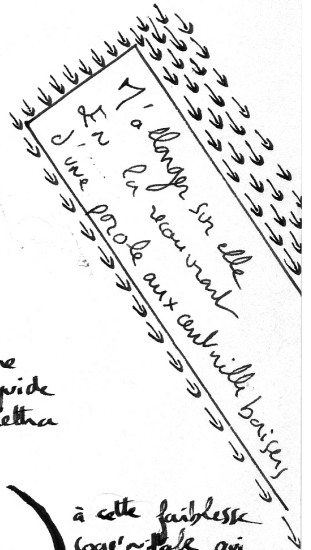 M'allonger sur elle
En la recouvrant
d'une parole aux cent mille baisers
à cette faiblesse
qui